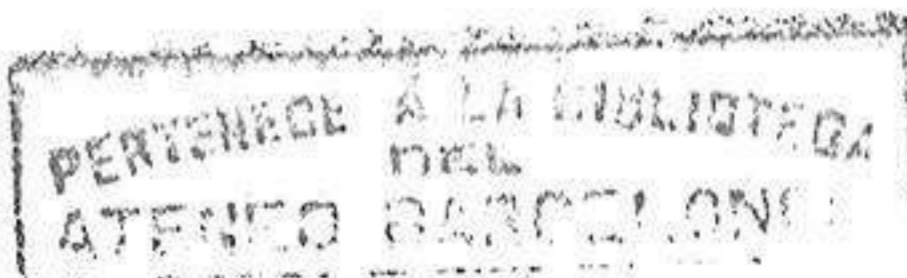 PERTENECE A LA BIBLIOTECA
DEL
ATENEO BARCELONÉS